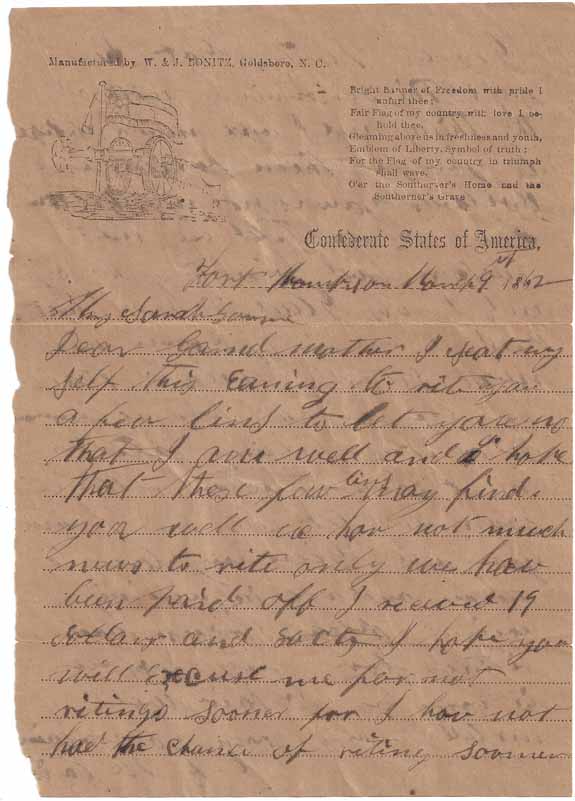 Manufactured by W. & J. BONITZ, Goldsboro, N. C.
Bright Banner of Freedom with pride I
unfurl thee;
Fair Flag of my country with love I be-
hold thee,
Gleaming above us in freshness and youth,
Emblem of Liberty, Symbol of truth;
For the Flag of my country in triumph
shall wave,
O'er the Southerner's Home and the
Southerner's Grave
Confederate States of America,
Fort 1862
Sarah
Dear Grand mother I seat my
self this eaning to rite you
a few lins to let you no
that I am well and I hope
that these few lins may find
you well we hav not much
news to rite only we hav
bun paid off I reciovd 19
dolars and I hope you
will excuse me for not
riting sooner for I hav not
had the chance of riting sooner